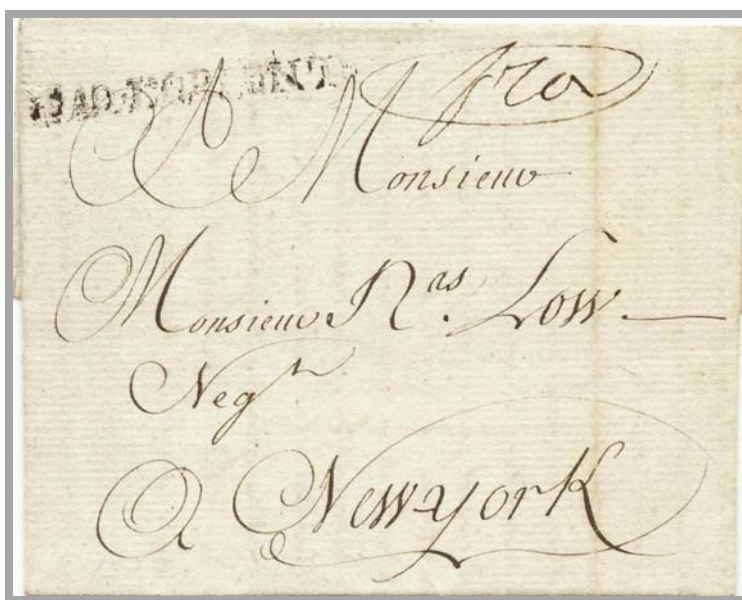 fra
A Monsieur
Monsieur N.as Low.
Neg.t
A New-york